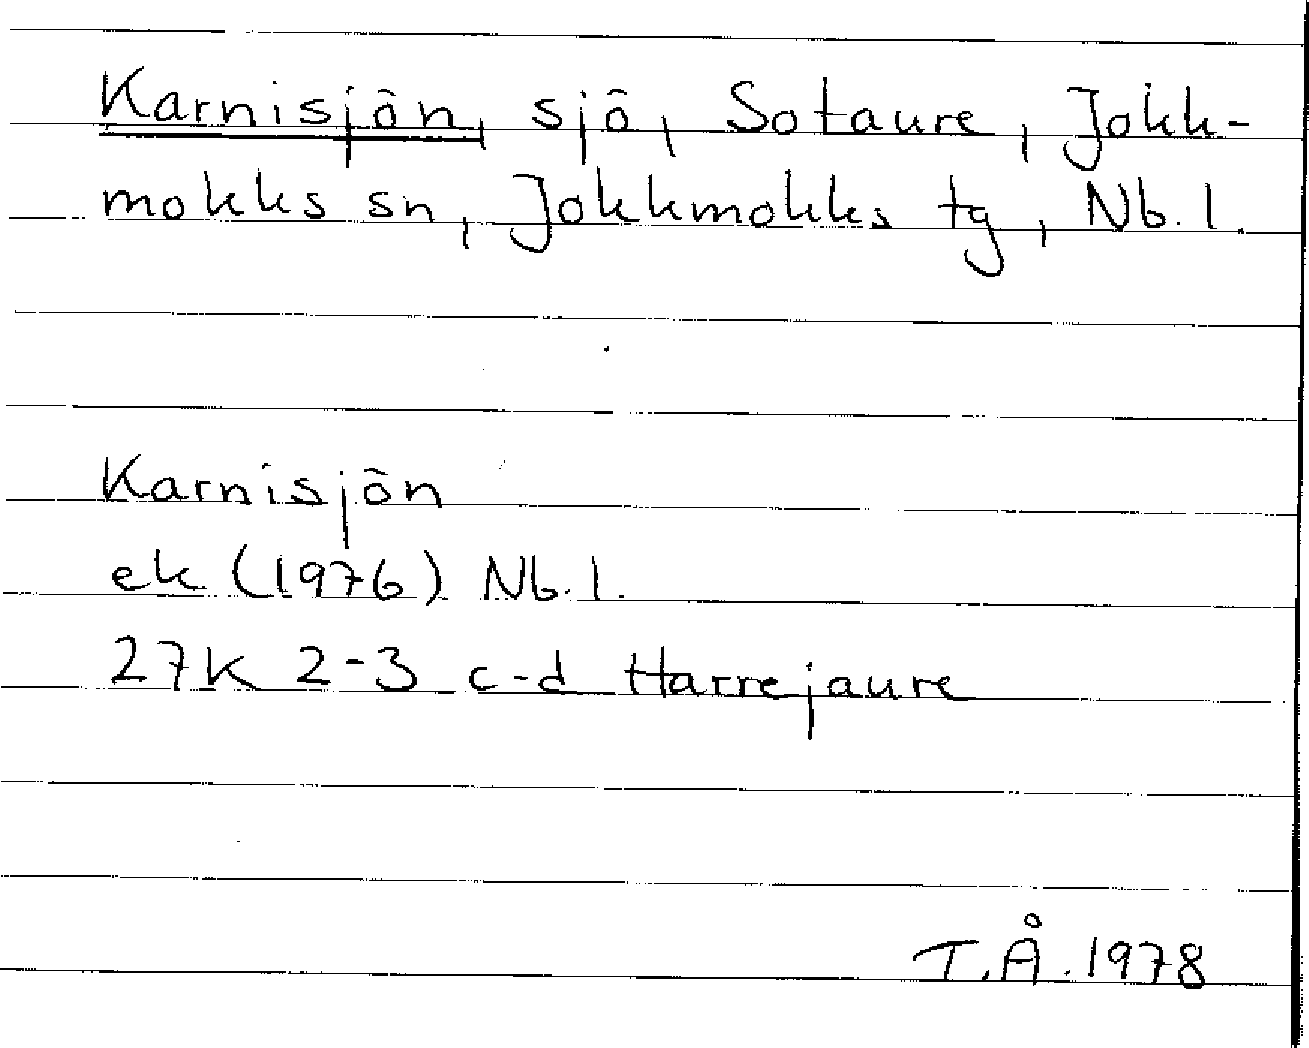 Karnisjön, sjö, Sotaure, Jokk-
mokks sn, Jokkmokks tg, Nb. l.
Karnisjön
ek (1976) Nb. l.
27K 2-3 c-d Harrejaure
T.Å. 1978